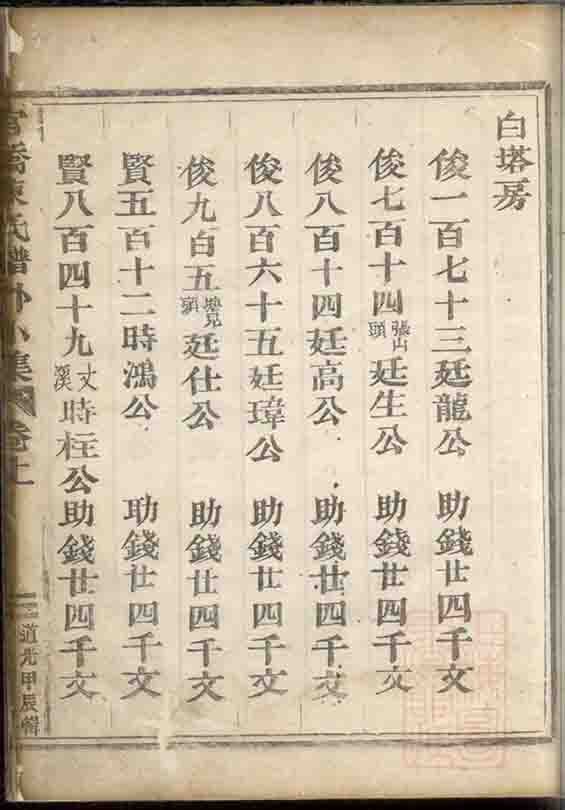 白塔房
俊一百七十三廷龍公 助錢廿四千文
俊七百十四張山頭廷生公 助錢廿四千文
俊八百十四廷高公 助錢廿四千文
俊八百六十五廷瑋公 助錢廿四千文
俊九百五頭廷仕公 助錢廿四千文
賢五百十二時鴻公 助錢廿四千文
賢八百四十九丈溪時柱公助錢廿四千文
橋陳氏譜外小集 卷上
道光甲辰輯